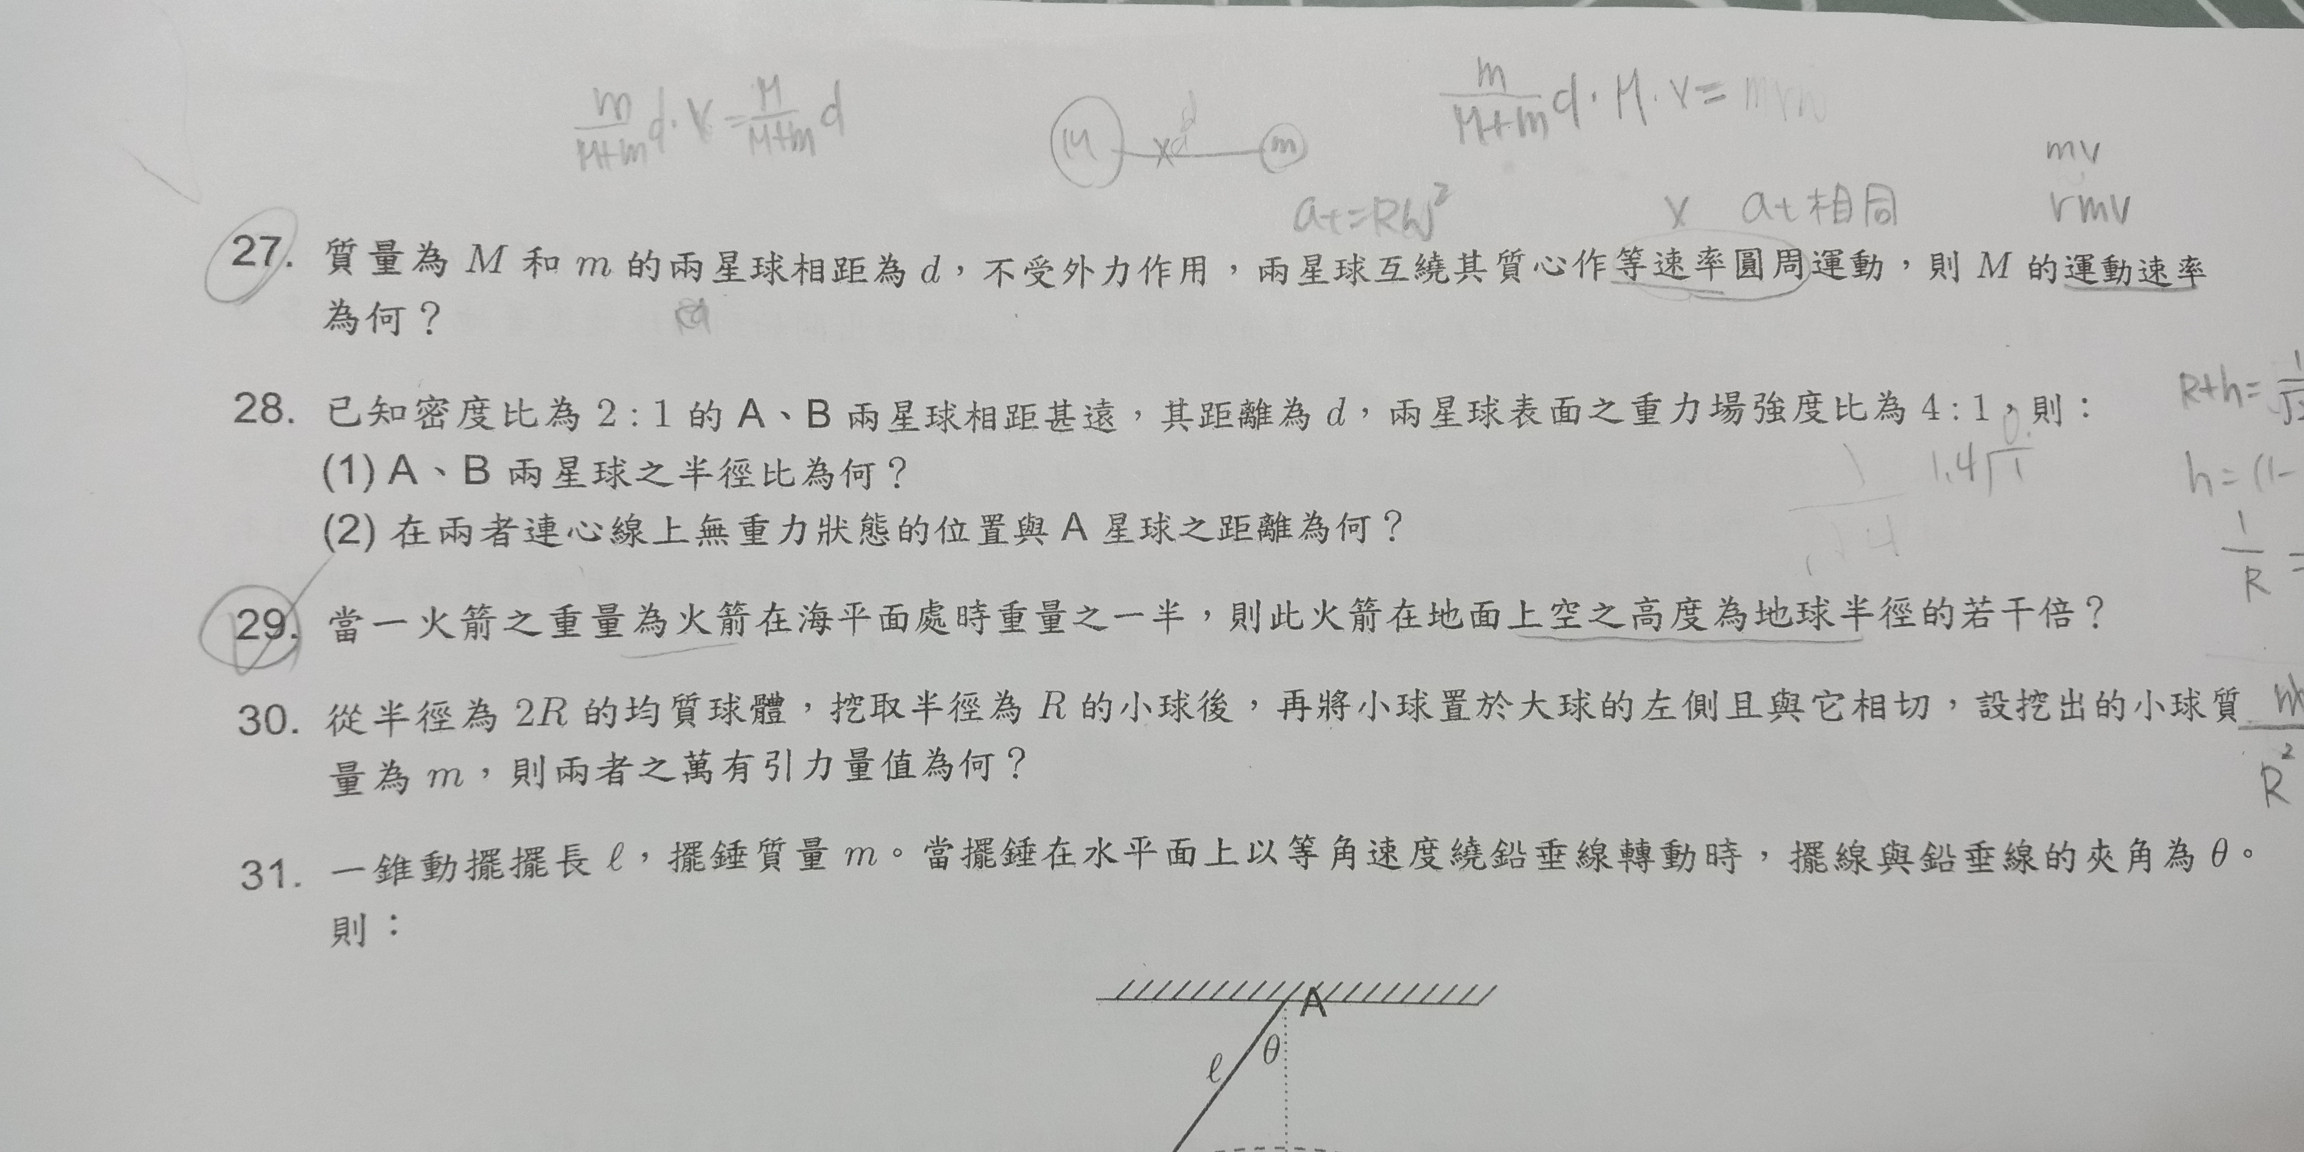 m/(M+m) d · V = M/(M+m) d
M x d m
m/(M+m) d · M · V =
mv
at=Rω² x at相同 rmv
27. 質量為 M 和 m 的兩星球相距為 d，不受外力作用，兩星球互繞其質心作等速率圓周運動，則 M 的運動速率
為何？
28. 已知密度比為 2 : 1 的 A、B 兩星球相距甚遠，其距離為 d，兩星球表面之重力場強度比為 4 : 1，則：
R+h=
(1) A、B 兩星球之半徑比為何？
1.4√1
h=(1-
(2) 在兩者連心線上無重力狀態的位置與 A 星球之距離為何？
1/R =
29. 當一火箭之重量為火箭在海平面處時重量之一半，則此火箭在地面上空之高度為地球半徑的若干倍？
30. 從半徑為 2R 的均質球體，挖取半徑為 R 的小球後，再將小球置於大球的左側且與它相切，設挖出的小球質
量為 m，則兩者之萬有引力量值為何？
R²
31. 一錐動擺擺長 ℓ，擺錘質量 m。當擺錘在水平面上以等角速度繞鉛垂線轉動時，擺線與鉛垂線的夾角為 θ。
則：
A
θ
ℓ